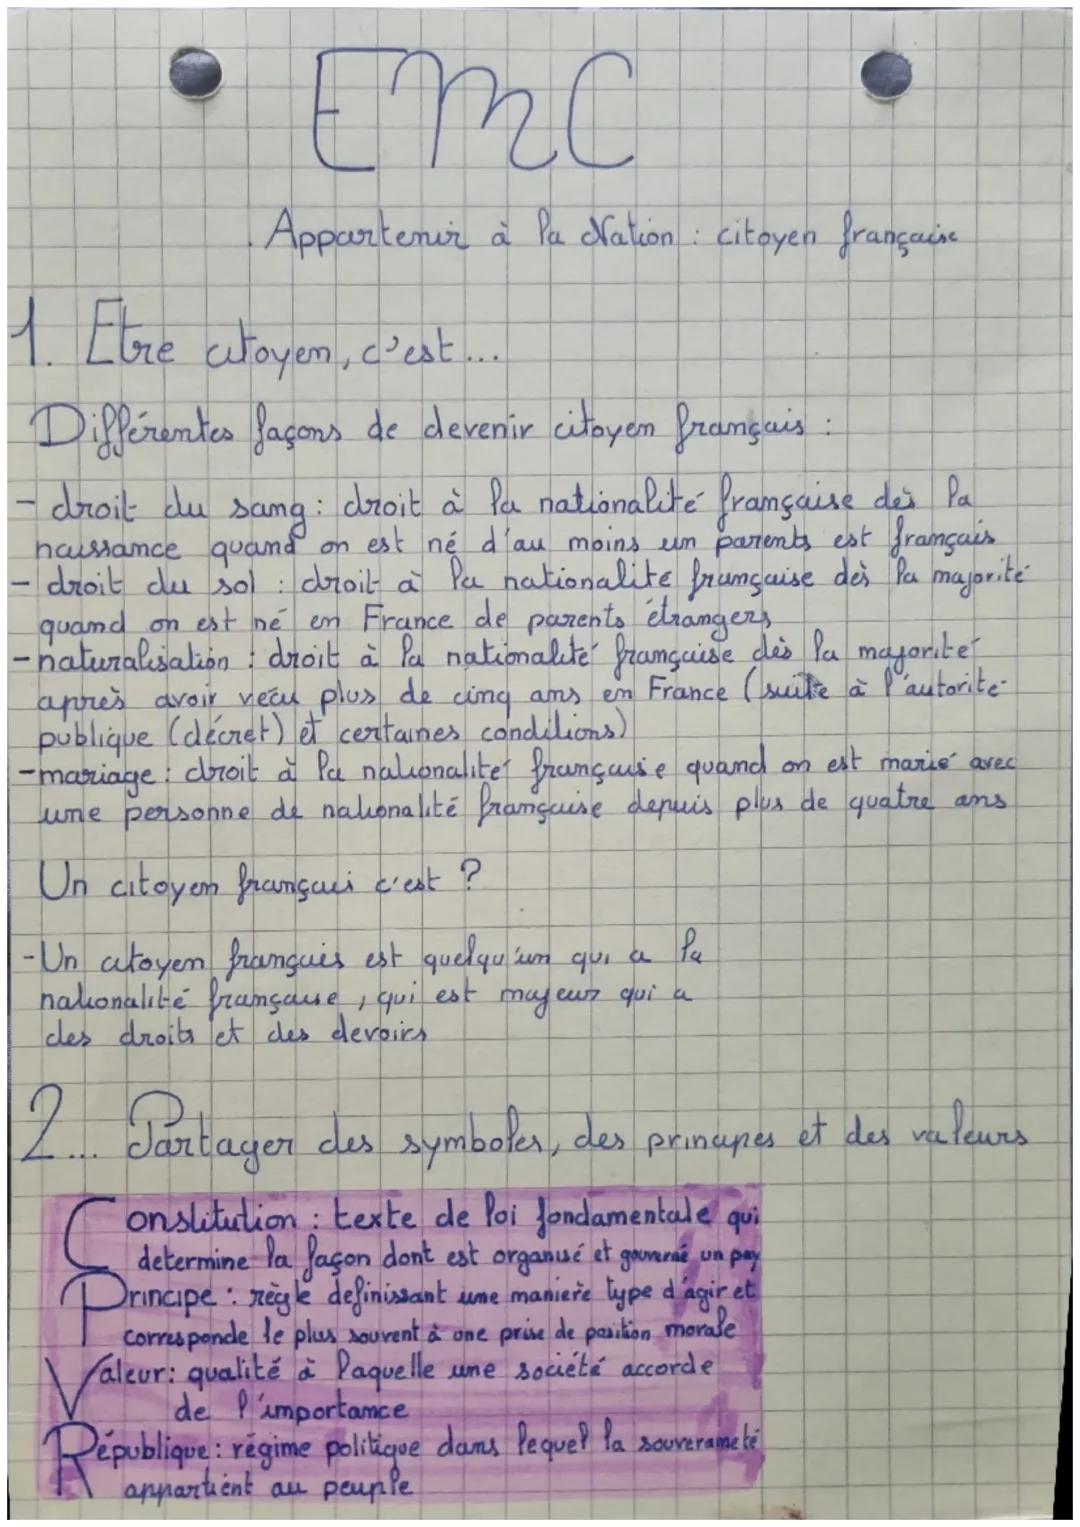 EMC
Appartenir à la Nation : citoyen française
1. Etre citoyen, c'est...
Différentes façons de devenir citoyen français :
- droit du sang : droit à la nationalité française dès la
naissance quand on est né d'au moins un parents est français
- droit du sol : droit à la nationalité française dès la majorité
quand on est né en France de parents étrangers
- naturalisation : droit à la nationalité française dès la majorité
après avoir vécu plus de cinq ans en France (suite à l'autorité
publique (décret) et certaines conditions)
- mariage : droit à la nationalité française quand on est marié avec
une personne de nationalité française depuis plus de quatre ans
Un citoyen françai c'est ?
- Un citoyen français est quelqu'un qui a la
nationalité française, qui est majeur qui a
des droits et des devoirs
2... Partager des symboles, des principes et des valeurs
Constitution : texte de loi fondamentale qui
determine la façon dont est organisé et gouverné un pay
Principe : règle definissant une manière type d'agir et
corresponde le plus souvent à une prise de position morale
Valeur : qualité à laquelle une société accorde
de l'importance
République : régime politique dans lequel la souveraineté
appartient au peuple